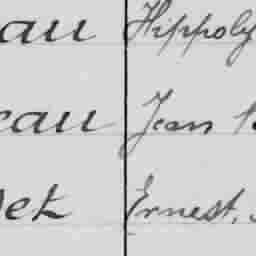 au Hippoly
eau Jean
et Ernest,